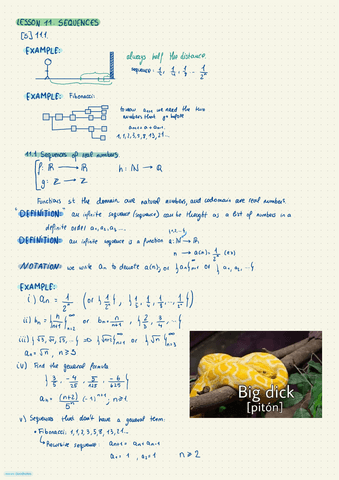 LESSON 11. SEQUENCES
[D] 11.1.
EXAMPLE:
always half the distance.
sequence: 1, 1/2, 1/4, ... 1/2^n
EXAMPLE: Fibonacci:
to know a_n+1 we need the two
numbers that go before
1, 1, 2, 3, 5, 8, 13, 21...
11.1. Sequences of real numbers.
f: ℝ → ℝ h: ℕ → ℚ
g: ℤ → ℤ
Functions st the domain are natural numbers, and codomain are real numbers
"DEFINITION" an infinite sequence (sequence) can be thought as a list of numbers in a
definite order a₁, a₂, a₃ ...
DEFINITION an infinite sequence is a function a: ℕ → ℝ
n → a(n) = 1/2^n
NOTATION we write a_n to denote a(n), or {a_n} or {a₁, a₂, ...}
EXAMPLE:
i) a_n = 1/2^n (or {1/2^n}, {1/2, 1/4, 1/8, ..., 1/2^n}
ii) b_n = {n/n+1} or b_n = n/n+1, {2/3, 3/4, ...}
iii) {√3, √4, √5, ...} or {√n} n=3
a_n = √n, n ≥ 3
iv) Find the general formula
{3/5, -4/25, 5/125, -6/625}
a_n = (n+2)/5^n (-1)^n+1, n ≥ 1
v) Sequences that don't have a general term.
• Fibonacci: 1, 1, 2, 3, 5, 8, 13, 21...
Recursive sequence:
a₁ = 1, a₂ = 1 n ≥ 2
Big dick
[pitón]